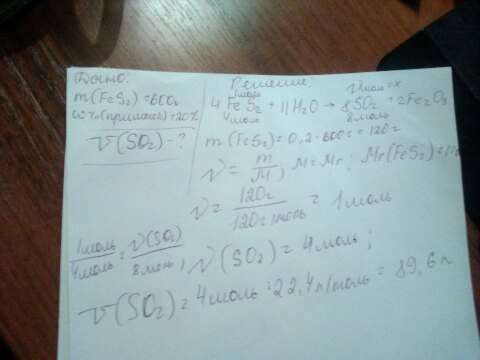 Дано:
m(FeS₂)=600г
ω%(примесей)=20%
V(SO₂)-?
Решение:
1моль ν моль=x
4FeS₂+11H₂O→8SO₂+2Fe₂O₃
4моль 8моль
m(FeS₂)=0,2·600г=120г
ν=m/M, M=Mr; Mr(FeS₂)=
ν=120г/120г/моль=1моль
1моль/4моль=ν(SO₂)/8моль, ν(SO₂)=4моль;
V(SO₂)=4моль·22,4л/моль=89,6л